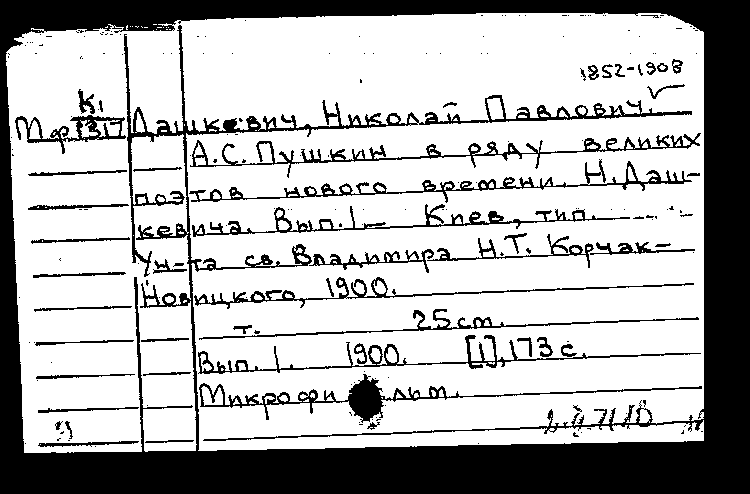 1852-1908
К1
Мф 1317 Дашкевич, Николай Павлович.
А.С. Пушкин в ряду великих
поэтов нового времени. Н. Даш-
кевича. Вып. 1.— Киев, тип.
Ун-та св. Владимира Н.Т. Корчак-
Новицкого, 1900.
т. 25 см.
Вып. 1. 1900. [1], 173 с.
Микрофильм.